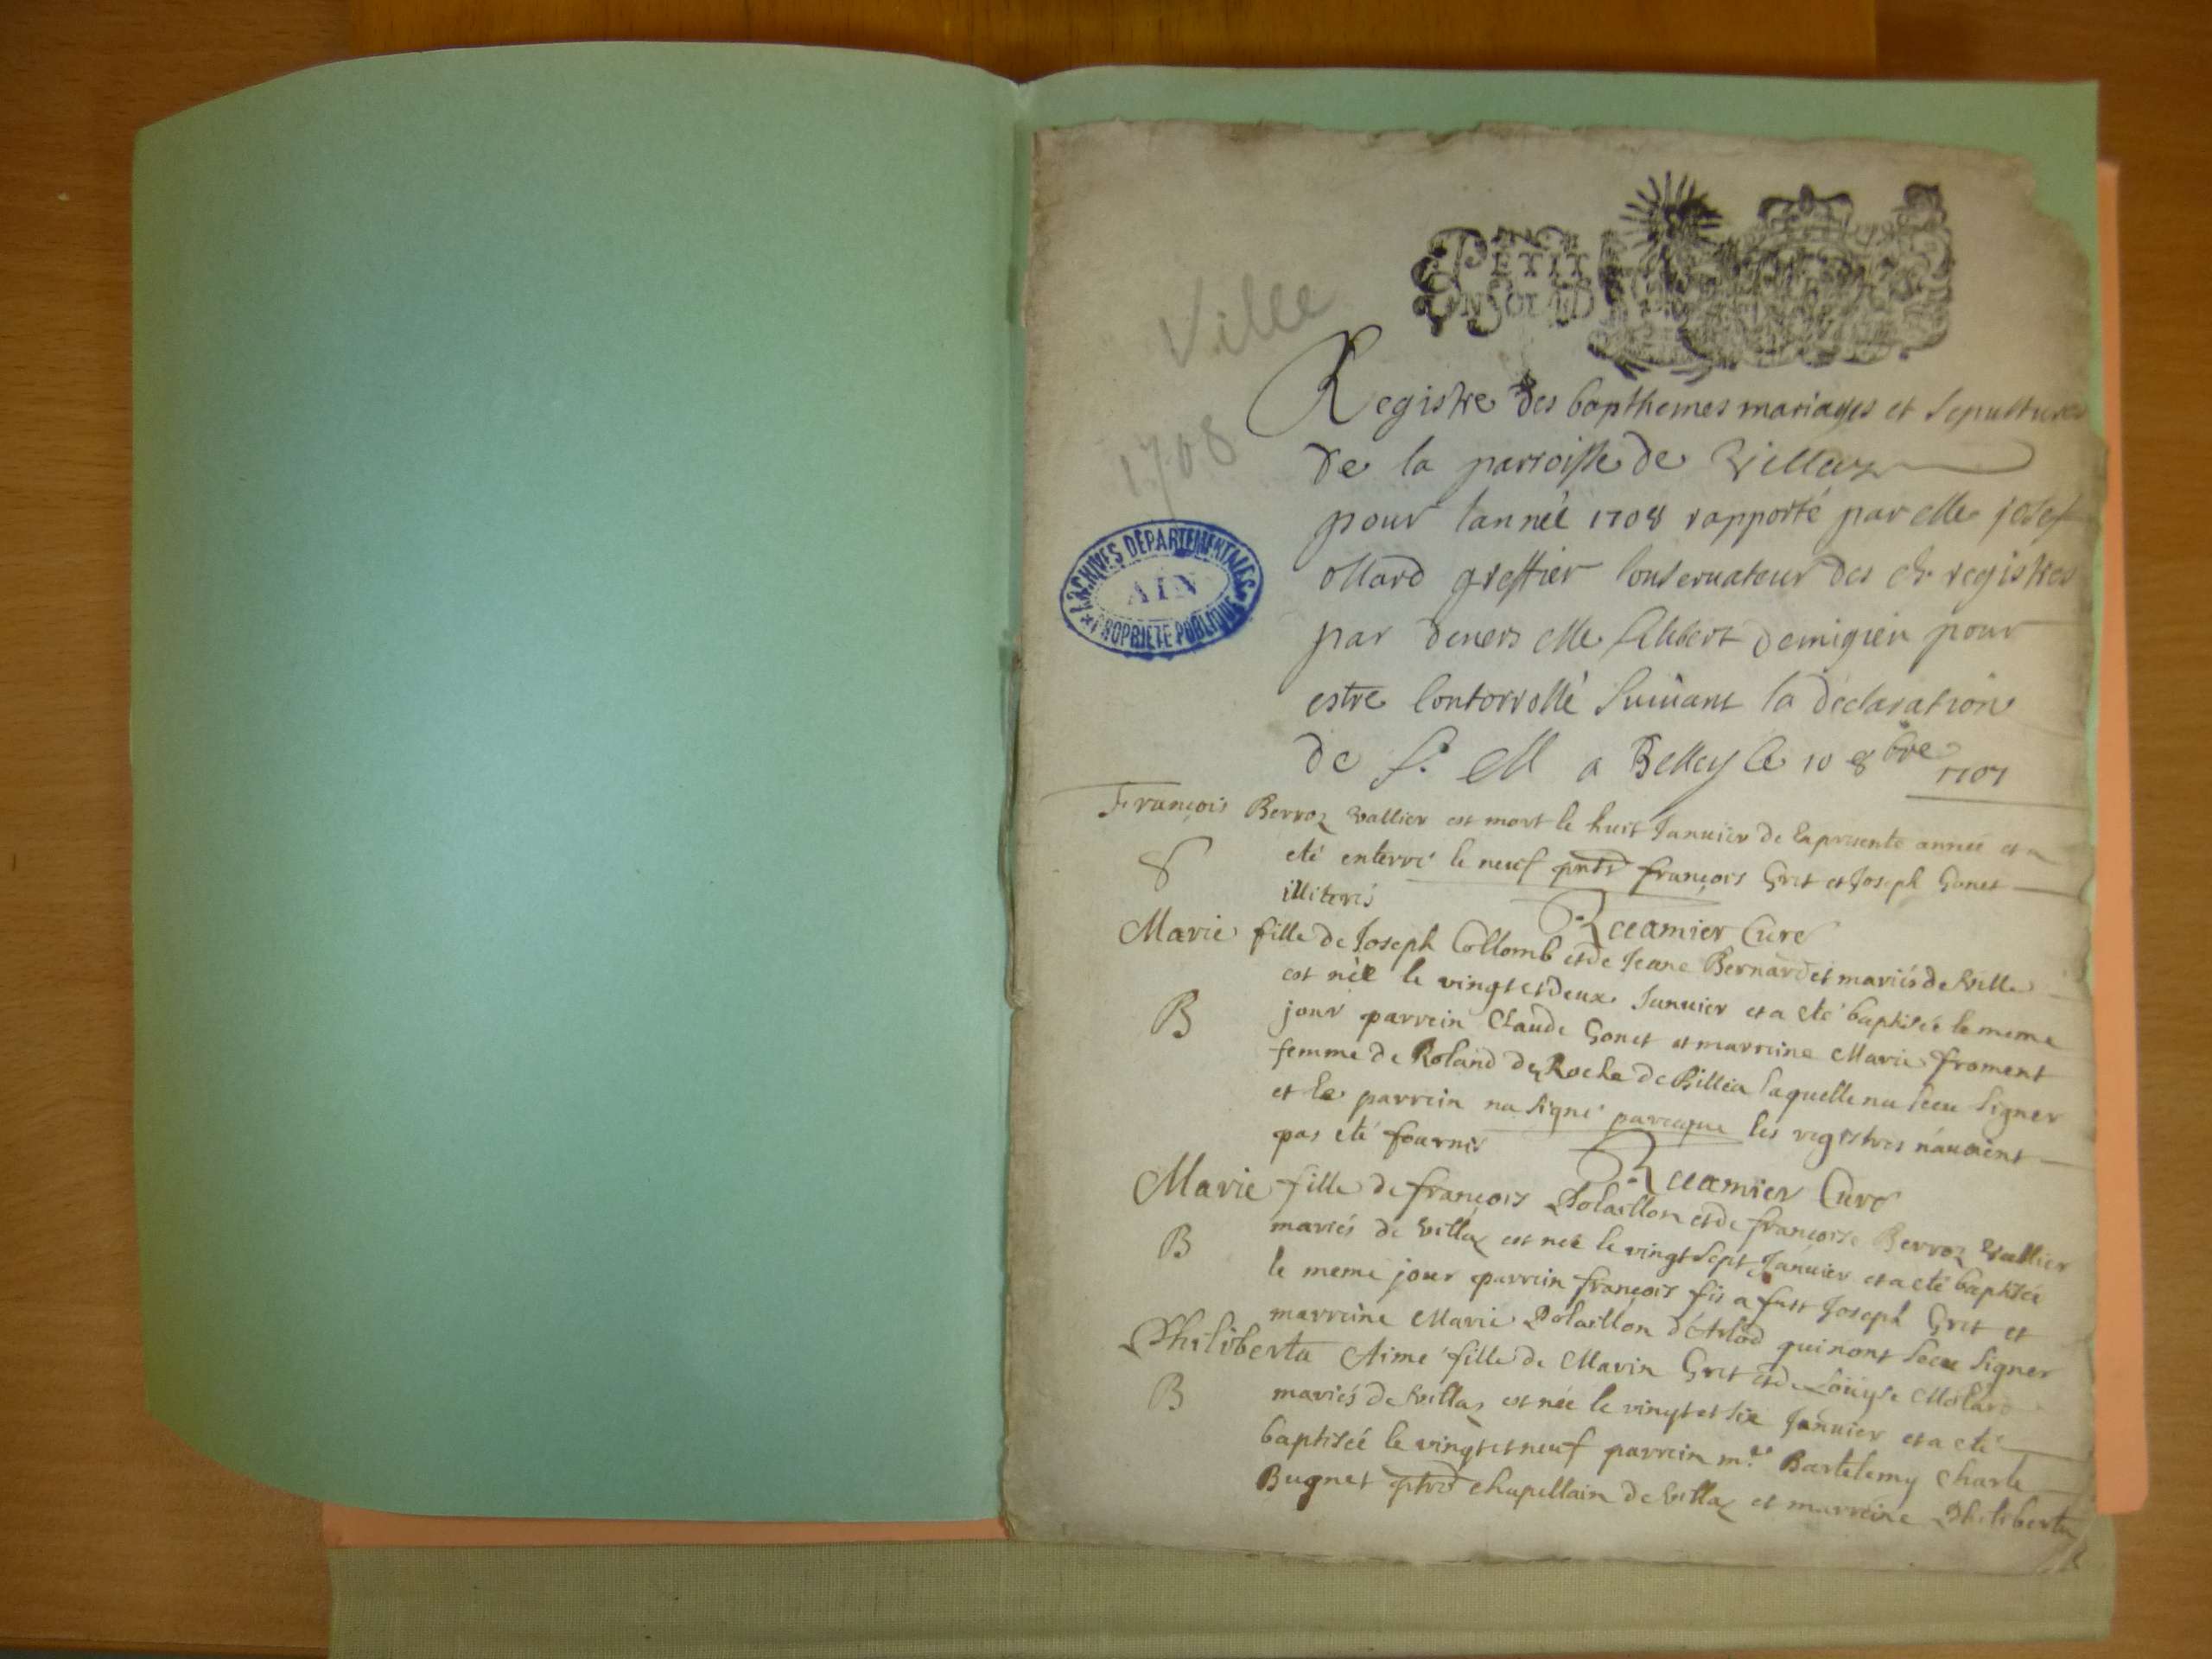 PETIT
UN SOL LD
Ville
1708
Registre des bapthemes mariages et sepultures
de la parroisse de Villaz
pour lannéé 1708 rapporté par Me josef
ollard greffier Conservateur des ch. registres
par devers Me filibert demigieu pour
estre Contorrollé suivant la déclaration
de S. M a Belley le 10 8bre 1707
ARCHIVES DEPARTEMENTALES
AIN
PROPRIETE PUBLIQUE
François Berroz vallier est mort le huit Januier de la presente année et a
S
eté enterré le neuf pnts françois Gret et Joseph Gonet
illiterés
Reamier Curé
Marie fille de Joseph Collomb et de Jeane Bernardet mariés de Ville
est néé le vingt et deux Januier et a eté baptisée le meme
B
jour parrein Claude Gonet et marreine Marie froment
femme de Roland de Roche de Billia laquelle na sceu signer
et le parrein na signé parceque les registres n'avoient
pas eté fournis
Reamier Curé
Marie fille de françois Polaillon et de françoise Berroz Vallier
B
mariés de Villaz est neé le vingt sept Januier et a eté baptisée
le meme jour parrein françois fis a fust Joseph Gret et
marreine Marie Polaillon d'Arlod qui nont sceu signer
Philiberta Aimé fille de Marin Gret et de Loüyse Molard
B
mariés de Villaz est née le vingt et six Januier et a eté
baptisée le vingt et neuf parrein mre Bartelemy Charle
Bugnet ptre chapellain de Villaz et marreine Philiberta